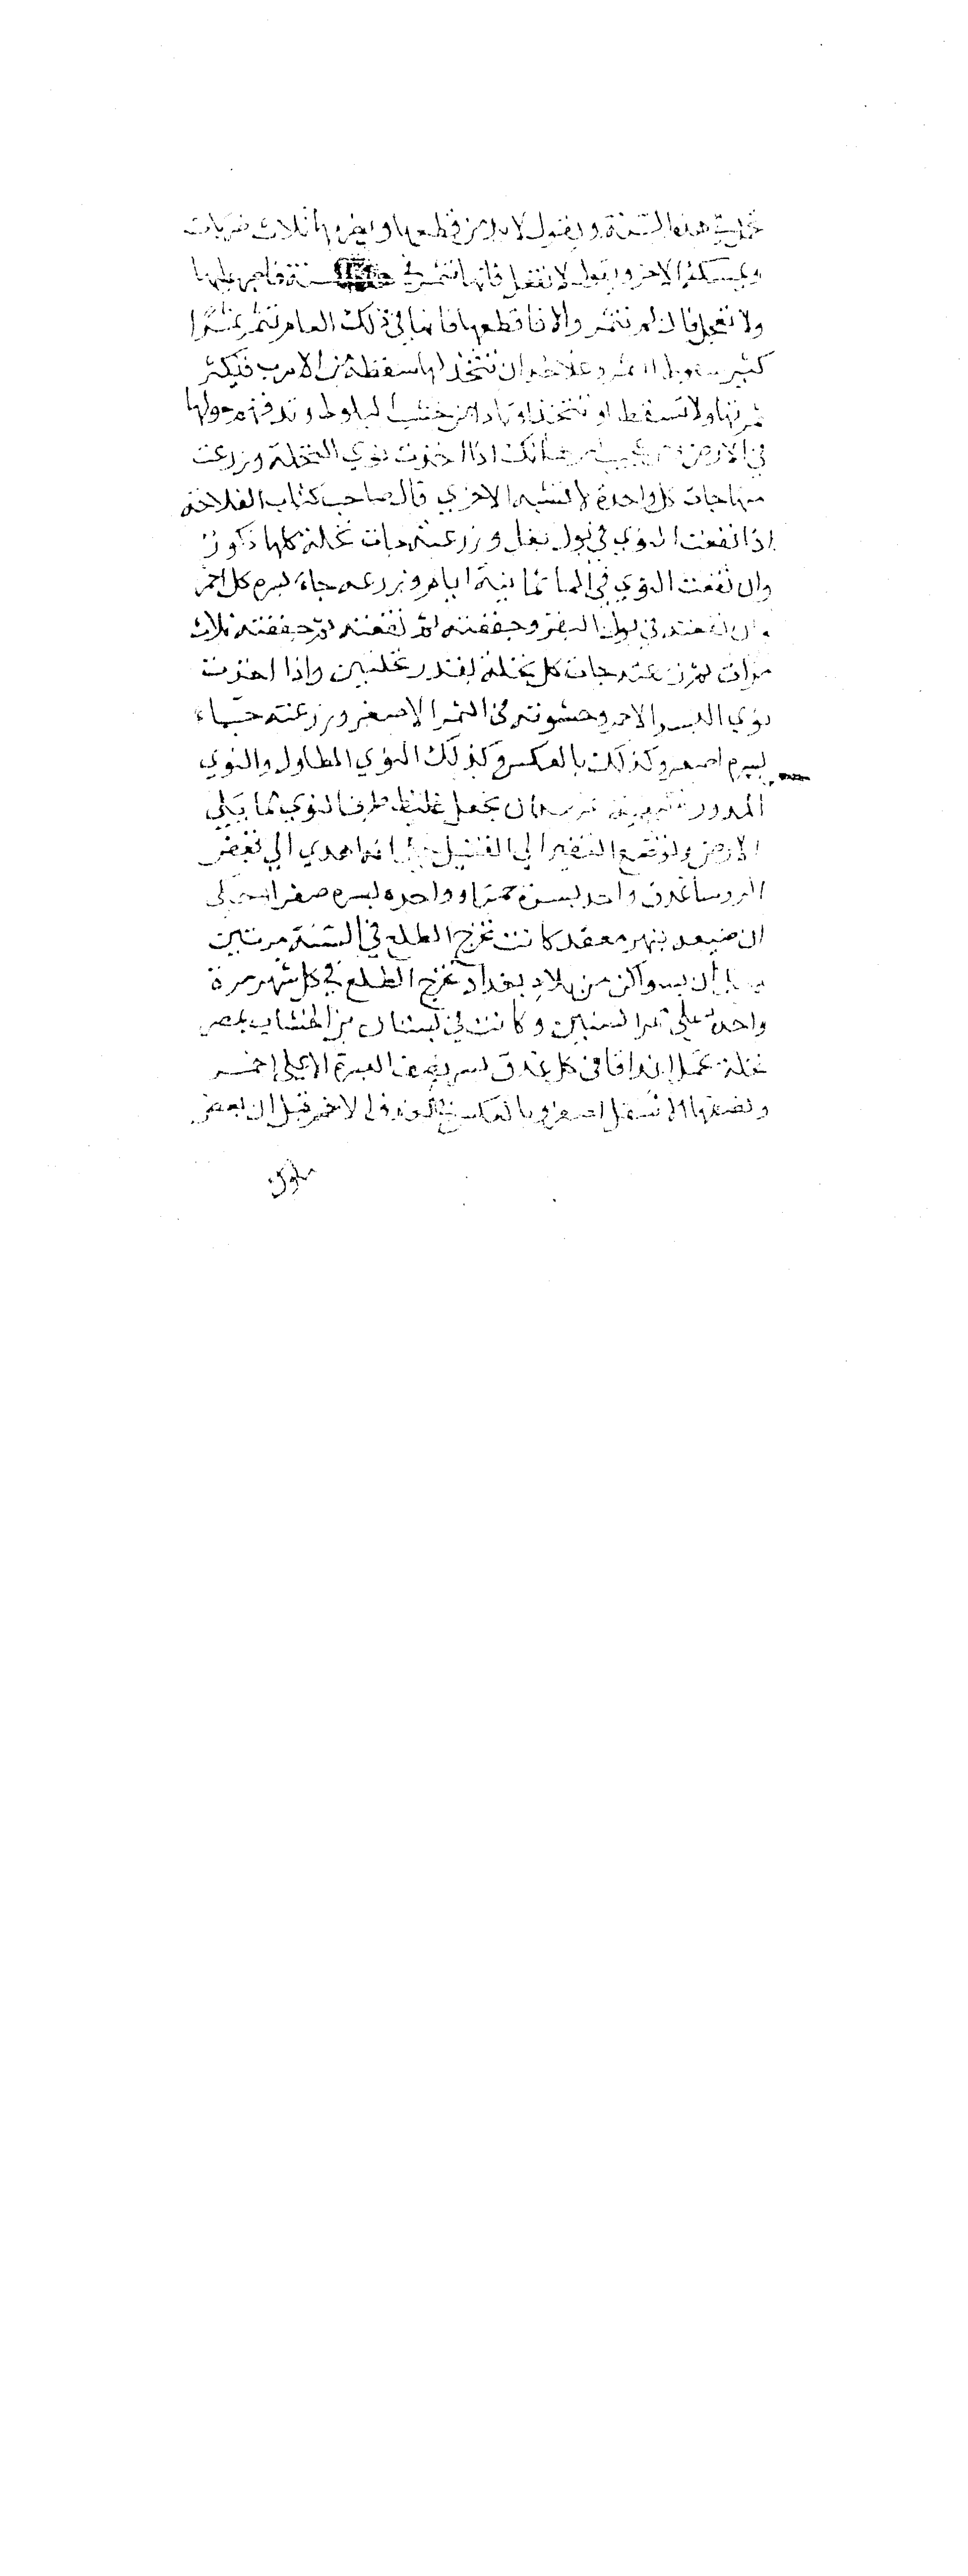 تحمل في هذه السنة ويقول لا بد من قطعها ويضربها ثلاث ضربات
ويمسكه الاخر ويقول لا تفعل فانها تثمر في سنة فاصبر عليها
ولا تعجل فان لم تثمر والا فاقطعها فانها في ذلك العام تثمر ثمرا
كثير ان تتخذ لها منطقة من الاسرب فتكثر
ثمرتها ولا تسقط او تتخذ اوتادا من خشب البلوط وتدفنه حولها
في الارض انك اذا اخذت نوي النخلة وزرعت
منها جات كل واحدة لا تشبه الاخري قال صاحب كتاب الفلاحة
اذا نقعت النوي في بول بغل وزرعته جات نخله كلها ذكور
وان نقعت النوي في الما ثمانية ايام وزرعته جاء بسره كل احمر
وان نقعته في بول البقر وجففته ثم نقعته ثم جففته ثلاث
مرات ثم زرعته جات كل نخلة بقدر نخلتين واذا اخذت
نوي البسر الاحمر وحشوته في التمر الاصفر وزرعته جاء
بسره اصفر وكذلك بالعكس وكذلك النوي المطاول والنوي
المدور ان يجعل غليظ طرف النوي مما يلي
الارض وموضع النقير الي القبلة انه اهدي الي بعض
الروسا عذق واحد بسرة حمرا وواحده بسره صفرا
ان ضيعه بنهر معقد كانت تخرج الطلع في السنة مرتين
من بلاد بغداد تخرج الطلع في كل شهر مرة
واحدة علي ممر السنين وكانت في بستان بن الخشاب بمصر
نخلة تحمل اعذاقا في كل عذق بسر نصف البسرة الاعلي احمر
ونصفها الاسفل اصفر وبالعكس في العذق الاخر قيل ان بعض
ملوك